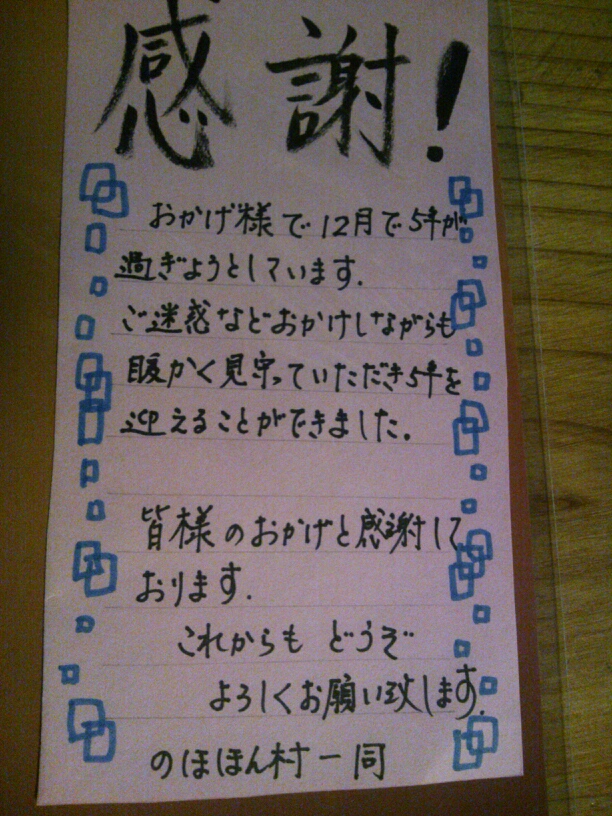 感謝!
おかげ様で12月で5年が
過ぎようとしています.
ご迷惑などおかけしながらも
暖かく見守っていただき5年を
迎えることができました。
皆様のおかげと感謝して
おります.
これからも どうぞ
よろしくお願い致します.
のほほん村一同